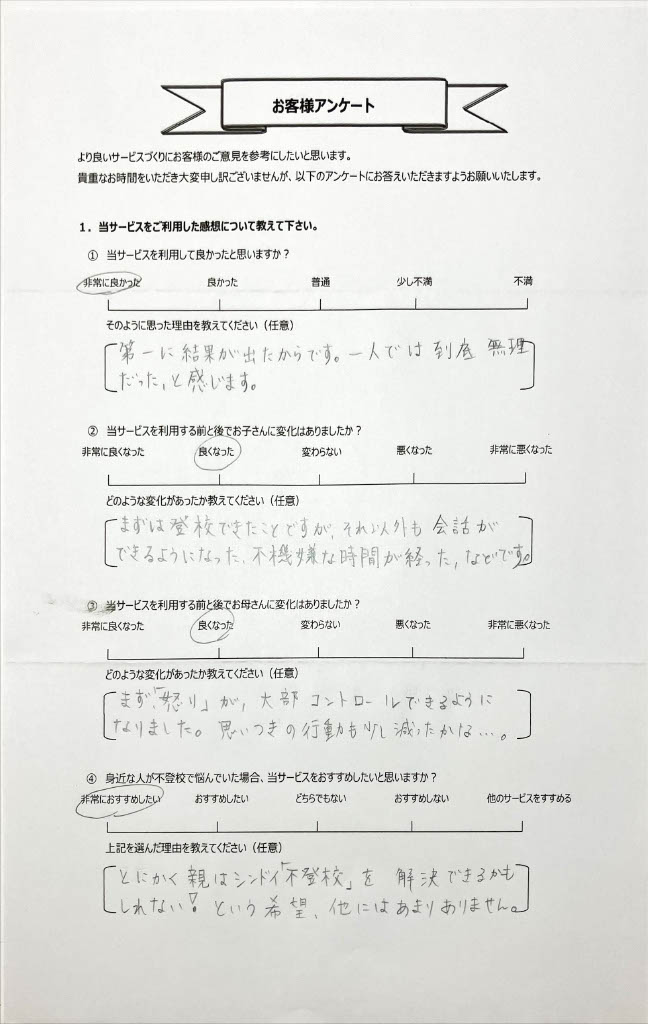 お客様アンケート
より良いサービスづくりにお客様のご意見を参考にしたいと思います。
貴重なお時間をいただき大変申し訳ございませんが、以下のアンケートにお答えいただきますようお願いいたします。
１．当サービスをご利用した感想について教えて下さい。
① 当サービスを利用して良かったと思いますか？
非常に良かった 良かった 普通 少し不満 不満
そのように思った理由を教えてください（任意）
第一に結果が出たからです。一人では到底無理
だった、と感じます。
② 当サービスを利用する前と後でお子さんに変化はありましたか？
非常に良くなった 良くなった 変わらない 悪くなった 非常に悪くなった
どのような変化があったか教えてください（任意）
まずは登校できたことですが、それ以外も会話が
できるようになった、不機嫌な時間が経った、などです。
③ 当サービスを利用する前と後でお母さんに変化はありましたか？
非常に良くなった 良くなった 変わらない 悪くなった 非常に悪くなった
どのような変化があったか教えてください（任意）
まず「怒り」が、大部コントロールできるように
なりました。思いつきの行動も少し減ったかな…。
④ 身近な人が不登校で悩んでいた場合、当サービスをおすすめしたいと思いますか？
非常におすすめしたい おすすめしたい どちらでもない おすすめしない 他のサービスをすすめる
上記を選んだ理由を教えてください（任意）
とにかく親はシンドイ「不登校」を解決できるかも
しれない！という希望、他にはあまりありません。